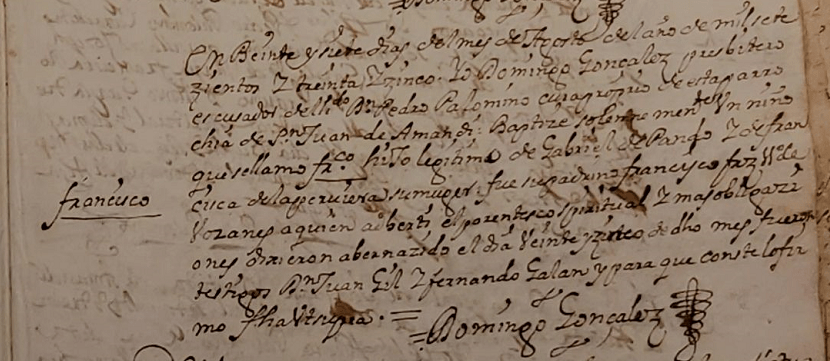 En Beinte y siete dias del mes de Agosto del año de mil sete
zientos Z treinta Z zinco. Yo Domingo Gonçalez presbitero
escusador del lido Bn Pedro Palomino cura proprio de esta parro
chia de Sn Juan de Amandi: Baptize solenne mente Vn niño
que se llamo frco hiJo legitimo de Gabriel de Pando Z de fran
cisca de la peruiera su muger: fue su padrino francisco frz Vo de
Vozanes a quien aduerti el parentesco spiritual Z mas obligazi
ones dixeron aber nazido el dia Veinte y zinco de dho mes fueron
testigos Bn Juan Gil Z fernando Galan y para que conste lo fir
mo fha Vt supra.
Domingo Gonçalez
francisco